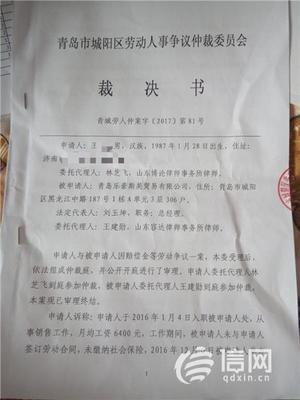 青岛市城阳区劳动人事争议仲裁委员会
裁决书
青城劳人仲案字（2017）第81号
申请人：王 男，汉族，1987年1月28日出生，住址：
济南
委托代理人：林芝飞，山东博论律师事务所律师。
被申请人：青岛乐豪斯美贸易有限公司，住所：青岛市城阳
区黑龙江中路187号1栋A单元3层306户。
法定代表人：刘玉坤，职务：总经理。
委托代理人：王建勋，山东睿达律师事务所律师。
申请人与被申请人因赔偿金等劳动争议一案，本委受理后，
依法组成仲裁庭，并公开开庭进行了审理。申请人委托代理人林
芝飞到庭参加仲裁，被申请人委托代理人王建勋到庭参加仲裁，
本案现已审理终结。
申请人诉称：申请人于2016年1月4日入职被申请人处，从
事销售工作，月均工资6400元，工作期间，被申请人未与申请人
签订劳动合同，未缴纳社会保险，2016年12月
1
信网
qdxin.cn